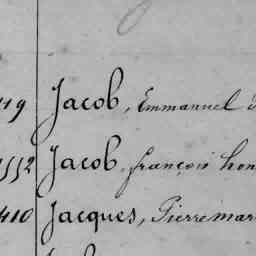 419 Jacob, Emmanuel
1552 Jacob, françois hon
410 Jacques, Pierre mar